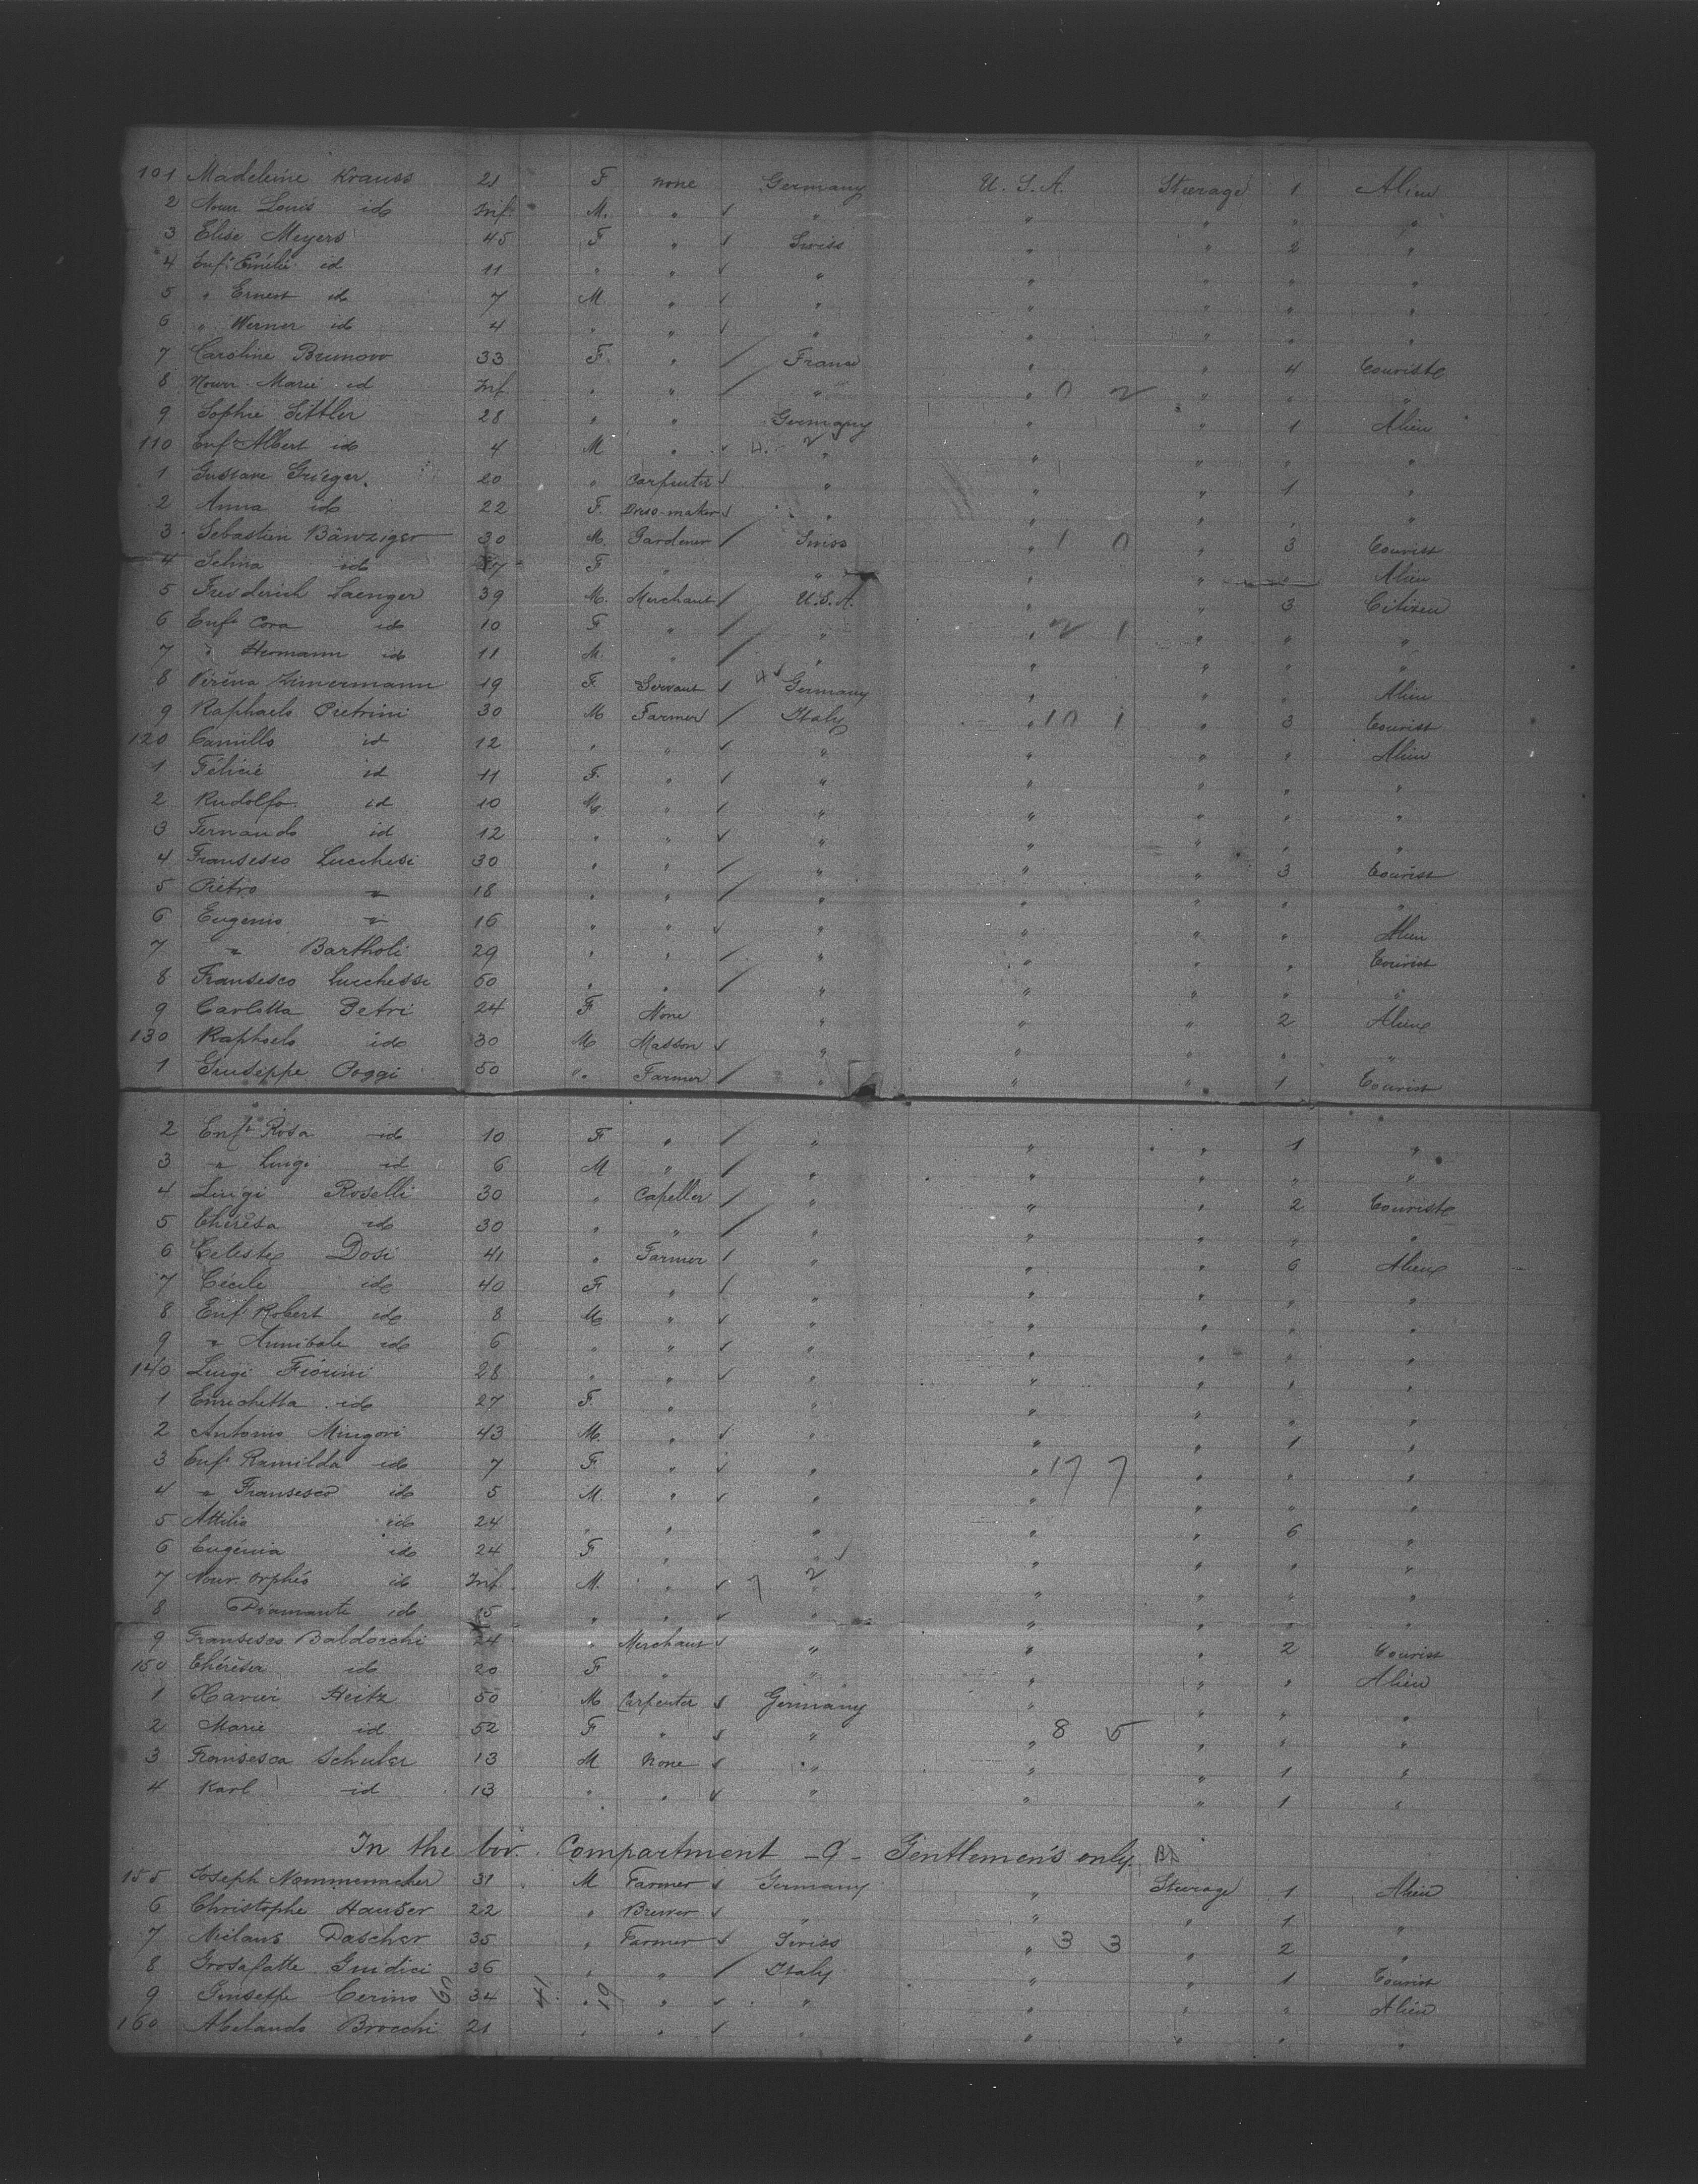 101 Madeleine Krauss 21 F none Germany U.S.A. Steerage 1 Alien
2 Nour Louis id Inf. M. " " " " " "
3 Elise Meyers 45 F " Swiss " " 2 "
4 Enft Emélie id 11 " " " " " " "
5 " Ernest id 7 M " " " " " "
6 " Werner id 4 " " " " " " "
7 Caroline Brunow 33 F. " France " " 4 Touriste
8 Nour. Marie id Inf. " " " " 0 2 " " "
9 Sophie Sittler 28 " " Germany " " 1 Alien
110 Enft Albert id 4 M " " " " " "
1 Gustave Grieger. 20 " Carpenter " " " 1 "
2 Anna id 22 F. Dress-maker " " " " "
3 Sebastien Bänziger 30 M. Gardener Swiss " 1 0 " 3 Tourist
4 Selina id F " " " " " Alien
5 Frederich Saenger 39 M. Merchant U.S.A. " " 3 Citizen
6 Enft Cora id 10 F " " " 2 1 " " "
7 " Hermann id 11 M. " " " " " "
8 Viréna Zimermann 19 F Servant Germany " " " Alien
9 Raphaelo Pietrini 30 M Farmer Italy " 10 1 " 3 Tourist
120 Camillo id 12 " " " " " " Alien
1 Félicié id 11 F. " " " " " "
2 Rudolfo id 10 M " " " " " "
3 Fernando id 12 " " " " " " "
4 Fransesco Lucchesi 30 " " " " " 3 Tourist
5 Pietro " 18 " " " " " " "
6 Eugenio " 16 " " " " " " Alien
7 " Bartholi 29 " " " " " " Tourist
8 Fransesco Lucchesse 60 " " " " " " "
9 Carlotta Petri 24 F None " " " 2 Aliene
130 Raphaelo id 30 M Masson " " " " "
1 Giuseppe Poggi 50 " Farmer " " " 1 Tourist
2 Enft Rosa id 10 F " " " " 1 "
3 " Luigi id 6 M " " " " " "
4 Luigi Roselli 30 " Capeller " " " 2 Touriste
5 Thérèsa id 30 " " " " " " "
6 Celeste Dosi 41 " Farmer " " " 6 Aliene
7 Cécile id 40 F " " " " " "
8 Enft Robert id 8 M " " " " " "
9 " Annibale id 6 " " " " " " "
140 Luigi Fiorini 28 " " " " " " "
1 Enrichetta id 27 F. " " " " " "
2 Antonio Mingori 43 M. " " " " 1 "
3 Enft Ramilda id 7 F " " " 17 7 " " "
4 " Fransesco id 5 M. " " " " " "
5 Attilio id 24 " " " " " 6 "
6 Eugénia id 24 F " " " " " "
7 Nour. Orphés id Inf. M. " " " " " "
8 Diamante id 15 " " " " " " "
9 Fransesco Baldocchi 24 " Merchant " " " 2 Tourist
150 Thérèsa id 20 F " " " " " Alien
1 Xavier Heitz 50 M Carpenter Germany " " " "
2 Marie id 52 F " " " 8 5 " " "
3 Fransesca Schuler 13 M None " " " 1 "
4 Karl id 13 " " " " " 1 "
In the Compartment - G - Gentlemen's only.
155 Joseph Nommenmacher 31 M Farmer Germany " Steerage 1 Alien
6 Christophe Hauser 22 " Brewer " " " 1 "
7 Mielans Dascher 35 " Farmer Swiss " 3 3 " 2 "
8 Grosafatte Guidici 36 " " Italy " " 1 Tourist
9 Giuseppe Cerino 60 34 41 " 19 " " " " " Alien
160 Abelando Brocchi 21 " " " " " " "